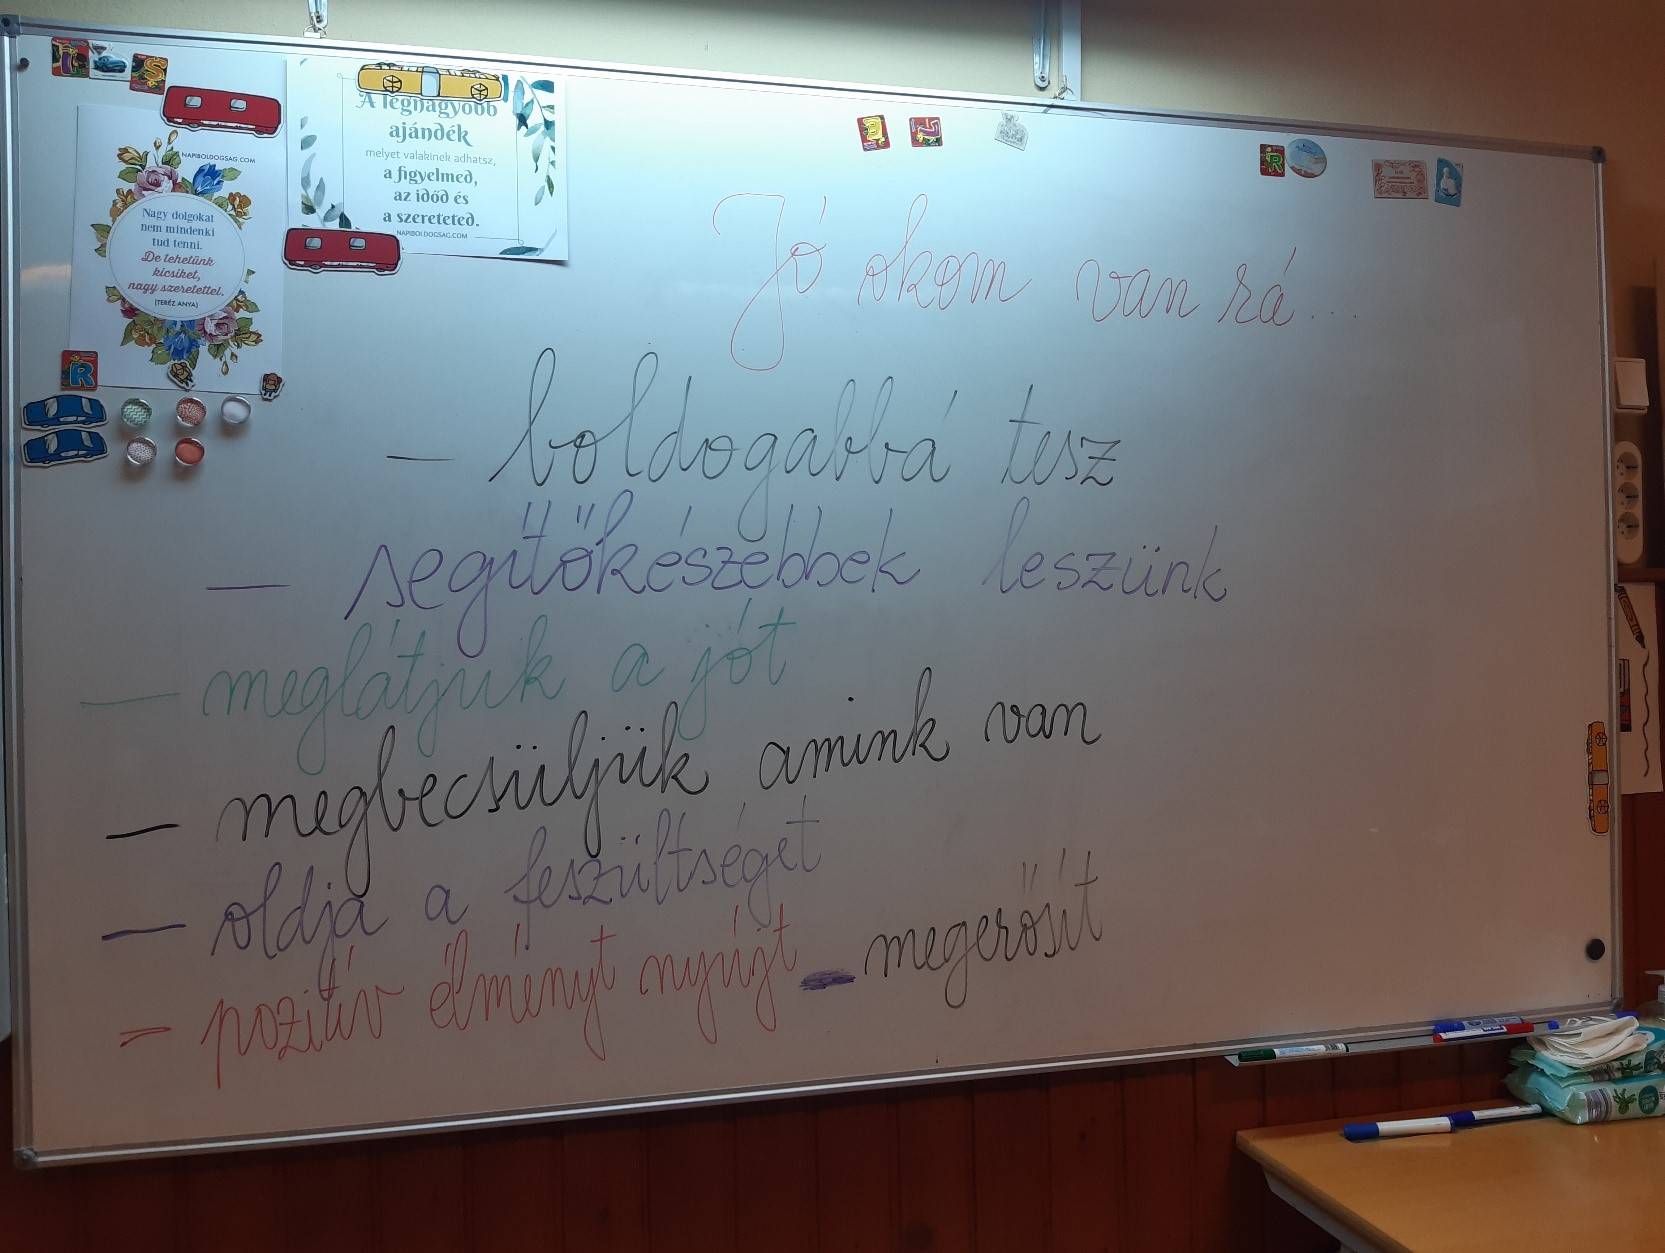 A legnagyobb
ajándék
melyet valakinek adhatsz,
a figyelmed,
az időd és
a szereteted.
NAPIBOLDOGSAG.COM
NAPIBOLDOGSAG.COM
Nagy dolgokat
nem mindenki
tud tenni.
De tehetünk
kicsiket,
nagy szeretettel.
(TERÉZ ANYA)
R
Jó okom van rá...
— boldogabbá tesz
— segítőkészebbek leszünk
— meglátjuk a jót
— megbecsüljük amink van
— oldja a feszültséget
– pozitív élményt nyújt – megerősít